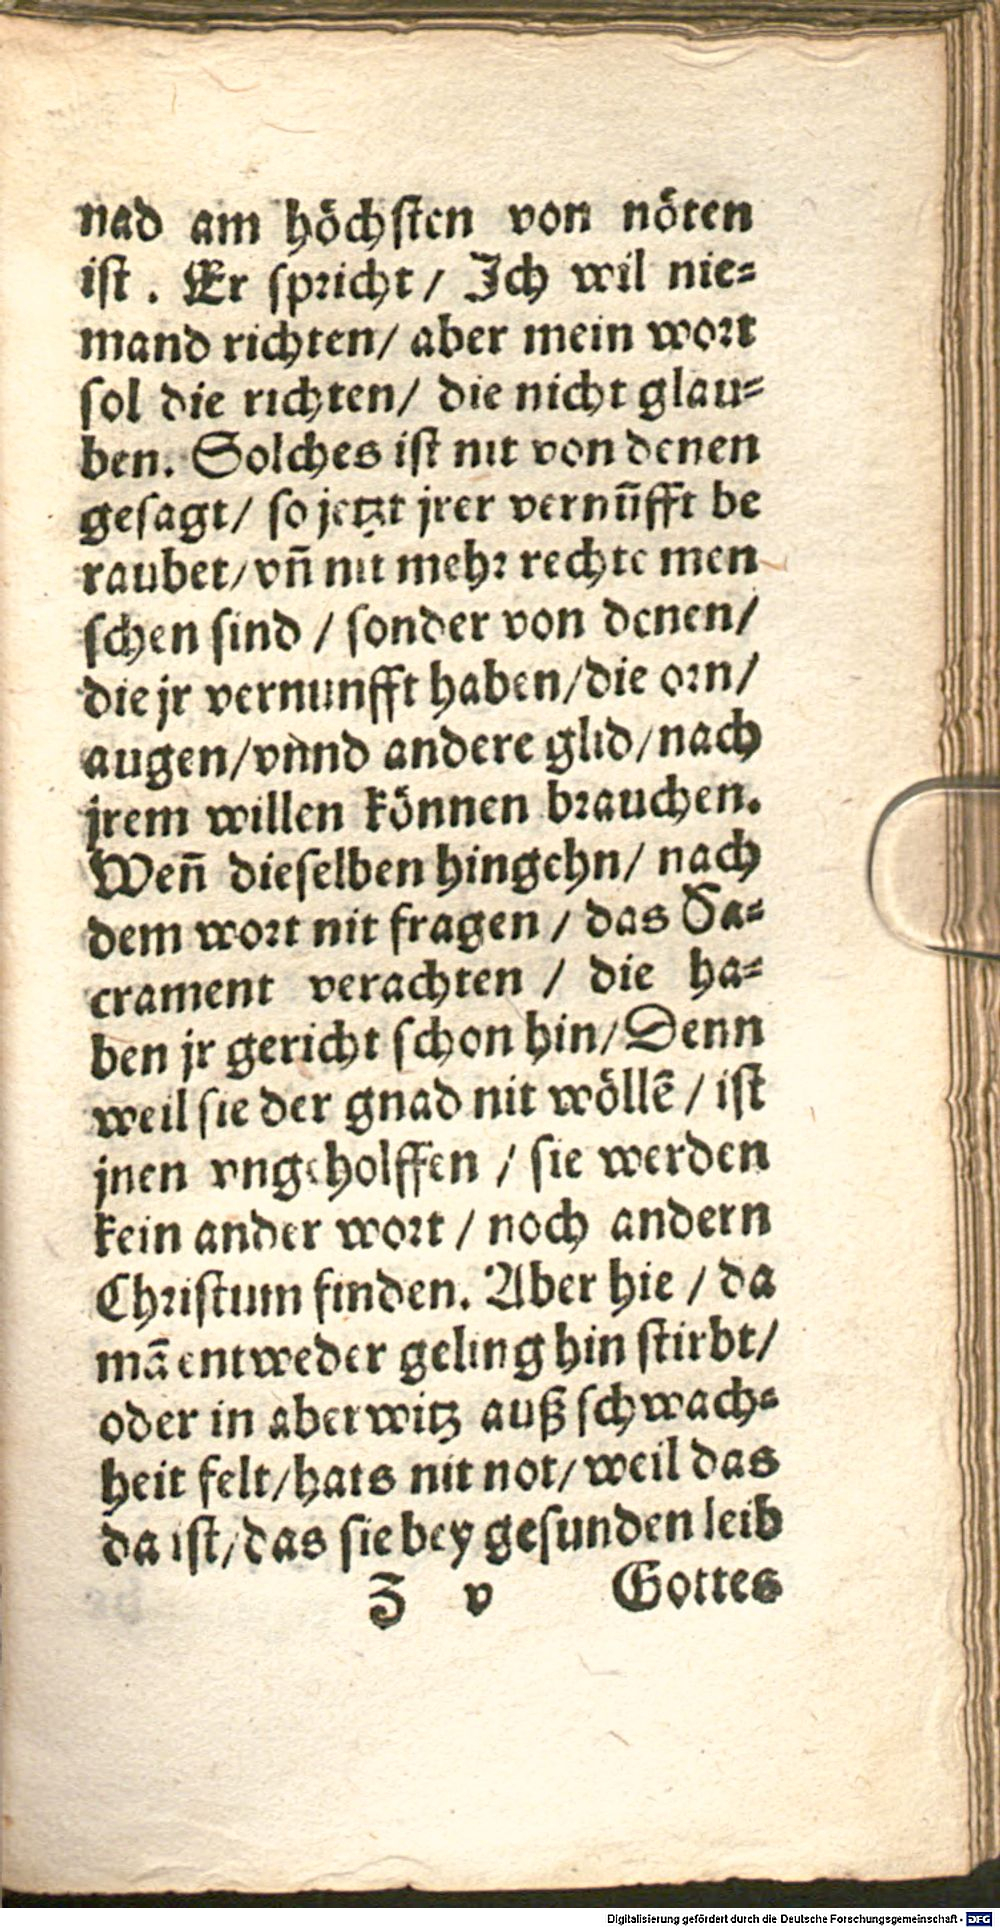 nad am höchsten von nöten
ist. Er spricht/ Ich wil nie-
mand richten/ aber mein wort
sol die richten/ die nicht glau-
ben. Solches ist nit von denen
gesagt/ so jetzt jrer vernūfft be
raubet/vn̄ nit mehr rechte men
schen sind/ sonder von denen/
die jr vernunfft haben/die orn/
augen/vnnd andere glid/nach
jrem willen können brauchen.
Wen̄ dieselben hingehn/ nach
dem wort nit fragen/ das Sa-
crament verachten/ die ha-
ben jr gericht schon hin/Denn
weil sie der gnad nit wöllē/ ist
jnen vngeholffen/ sie werden
kein ander wort/ noch andern
Christum finden. Aber hie/ da
mā entweder geling hin stirbt/
oder in aberwitz auß schwach-
heit felt/hats nit not/weil das
da ist/das sie bey gesunden leib
Z v Gottes
Digitalisierung gefördert durch die Deutsche Forschungsgemeinschaft - DFG